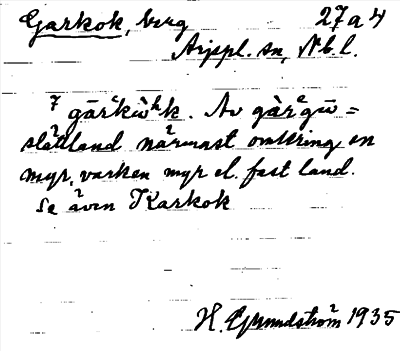 Garkok, berg 27a4
Arjepl. sn, Nb. l.
7 gārˈkùʰk. Av gàrᵉgū =
slättland närmast omkring en
myr, varken myr el. fast land.
Se även Karkok
H. Grundström 1935